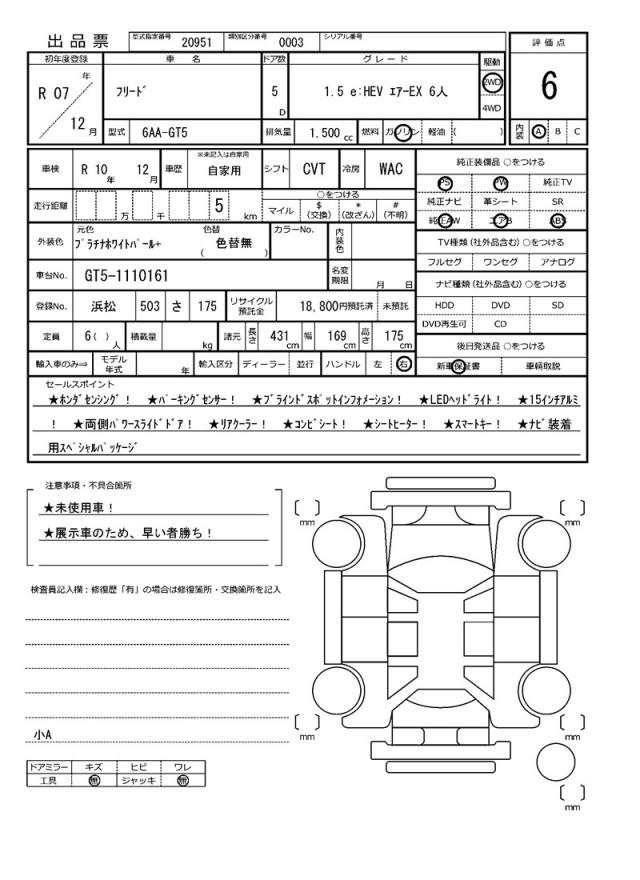 出品票 型式指定番号 20951 類別区分番号 0003 シリアル番号
評価点
初年度登録 車名 ドア数 グレード 駆動
R 07 年 12 月 ﾌﾘｰﾄﾞ 5 D 1.5 e:HEV ｴｱｰEX 6人 2WD 4WD 6
型式 6AA-GT5 排気量 1.500 cc 燃料 ガソリン 軽油 ( ) 内装 A B C
車検 R 10 年 12 月 車歴 ※未記入は自家用 自家用 シフト CVT 冷房 WAC
純正装備品 ○をつける
PS PW 純正TV
純正ナビ 革シート SR
純正AW エアB ABS
走行距離 万 千 5 km
○をつける
マイル $ (交換) * (改ざん) # (不明)
外装色 元色 ﾌﾟﾗﾁﾅﾎﾜｲﾄﾊﾟｰﾙ+ 色替 ( 色替無 ) カラーNo. 内装色
TV種類 (社外品含む) ○をつける
フルセグ ワンセグ アナログ
車台No. GT5-1110161 名変期限 月 日
ナビ種類 (社外品含む) ○をつける
HDD DVD SD
DVD再生可 CD
登録No. 浜松 503 さ 175 リサイクル預託金 18,800円預託済 未預託
定員 6( ) 人 積載量 kg 諸元 長さ 431 cm 幅 169 cm 高さ 175 cm
後日発送品 ○をつける
新車保証書 車輌取説
輸入車のみ⇒ モデル年式 年 輸入区分 ディーラー 並行 ハンドル 左 右
セールスポイント
★ﾎﾝﾀﾞｾﾝｼﾝｸﾞ！ ★ﾊﾟｰｷﾝｸﾞｾﾝｻｰ！ ★ﾌﾞﾗｲﾝﾄﾞｽﾎﾟｯﾄｲﾝﾌｫﾒｰｼｮﾝ！ ★LEDﾍｯﾄﾞﾗｲﾄ！ ★15ｲﾝﾁｱﾙﾐ
！ ★両側ﾊﾟﾜｰｽﾗｲﾄﾞﾄﾞｱ！ ★ﾘｱｸｰﾗｰ！ ★ｺﾝﾋﾞｼｰﾄ！ ★ｼｰﾄﾋｰﾀｰ！ ★ｽﾏｰﾄｷｰ！ ★ﾅﾋﾞ装着
用ｽﾍﾟｼｬﾙﾊﾟｯｹｰｼﾞ
注意事項・不具合箇所
★未使用車！
★展示車のため、早い者勝ち！
検査員記入欄：修復歴「有」の場合は修復箇所・交換箇所を記入
小A
ドアミラー キズ ヒビ ワレ
工具 無 ジャッキ 無
[ ] mm
[ ] mm
[ ] mm
[ ] mm
[ ] mm